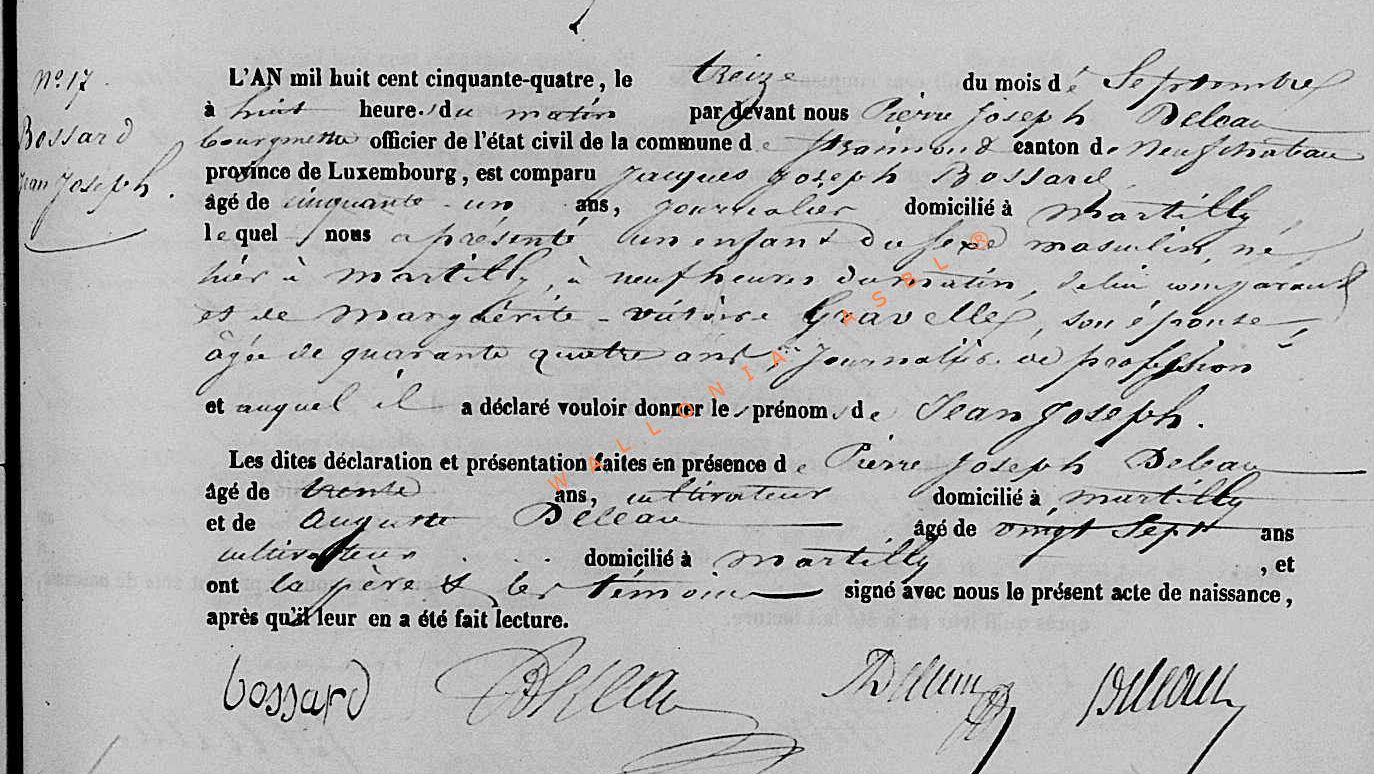 N° 17
Bossard
Jean Joseph.
L'AN mil huit cent cinquante-quatre, le treize du mois de Septembre
à huit heures du matin par devant nous Pierre Joseph Deleau
bourgmestre officier de l'état civil de la commune de Straimont canton de Neufchateau
province de Luxembourg, est comparu Jacques Joseph Bossard
âgé de cinquante-un ans, journalier domicilié à Martilly
lequel nous a présenté un enfant du sexe masculin, né
hier à Martilly, à neuf heures du matin, de lui comparant
et de Marguérite-victoire Gravelle, son épouse,
âgée de quarante quatre ans, journalière de profession
et auquel il a déclaré vouloir donner les prénoms de Jean Joseph.
Les dites déclaration et présentation faites en présence de Pierre Joseph Deleau
âgé de trente ans, cultivateur domicilié à Martilly
et de Auguste Deleau âgé de vingt Sept ans
cultivateur domicilié à Martilly, et
ont le père & les témoins signé avec nous le présent acte de naissance,
après qu'il leur en a été fait lecture.
bossard Deleau Deleau
WALLONIA ASBL ®